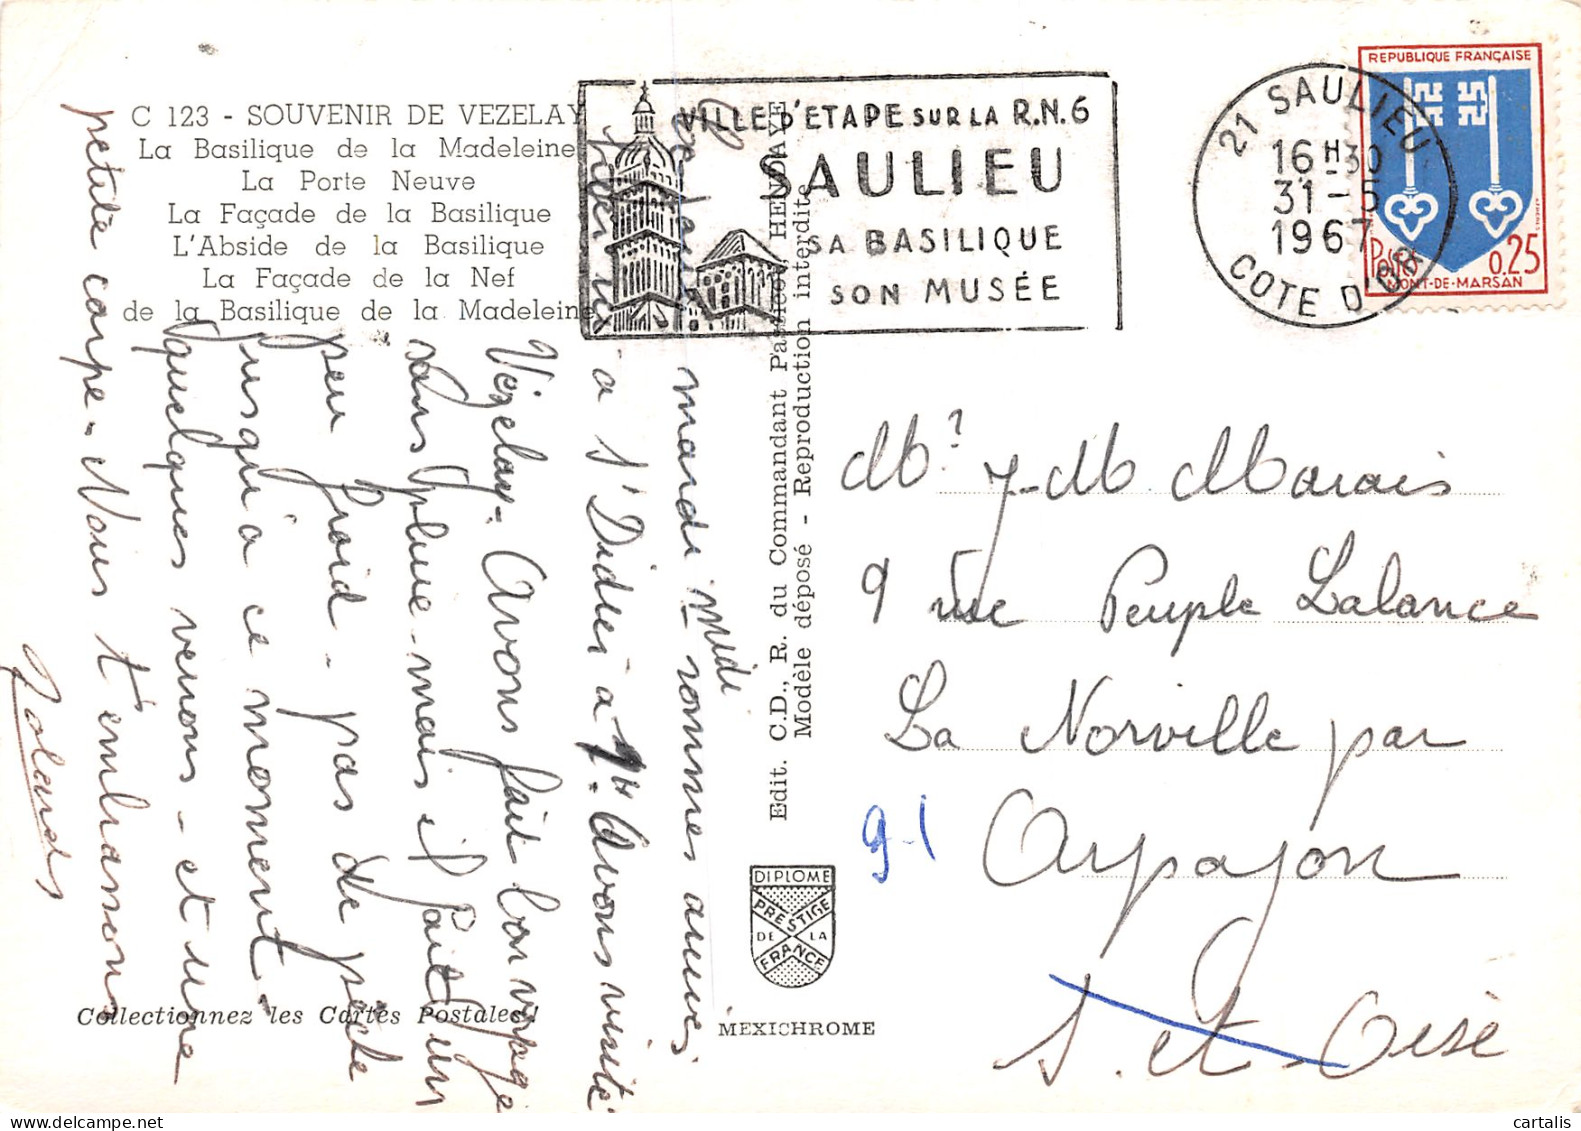 C 123 - SOUVENIR DE VEZELAY
La Basilique de la Madeleine
La Porte Neuve
La Façade de la Basilique
L'Abside de la Basilique
La Façade de la Nef
de la Basilique de la Madeleine
VILLE D'ETAPE SUR LA R.N.6
SAULIEU
SA BASILIQUE
SON MUSÉE
21 SAULIEU
16H30
31-5
1967
COTE D'OR
REPUBLIQUE FRANÇAISE
Postes
0.25
MONT-DE-MARSAN
mardi midi - sommes arrivés
a St Didier à 1H. Avons visité
Vézelay - Avons fait bon voyage
sans pluie - mais il fait un
peu froid - pas de pêche
jusqu'à ce moment -
quelques vérons - et une
petite carpe - Nous t'embrassons
Edit. C.D., R. du Commandant Passicot, HENDAYE
Modèle déposé - Reproduction interdite
Mr J-M Marais
9 rue Peuple Lalance
La Norville par
91 Arpajon
S. et Oise
DIPLOME
PRESTIGE
DE LA
FRANCE
Collectionnez les Cartes Postales!
MEXICHROME
cartalis